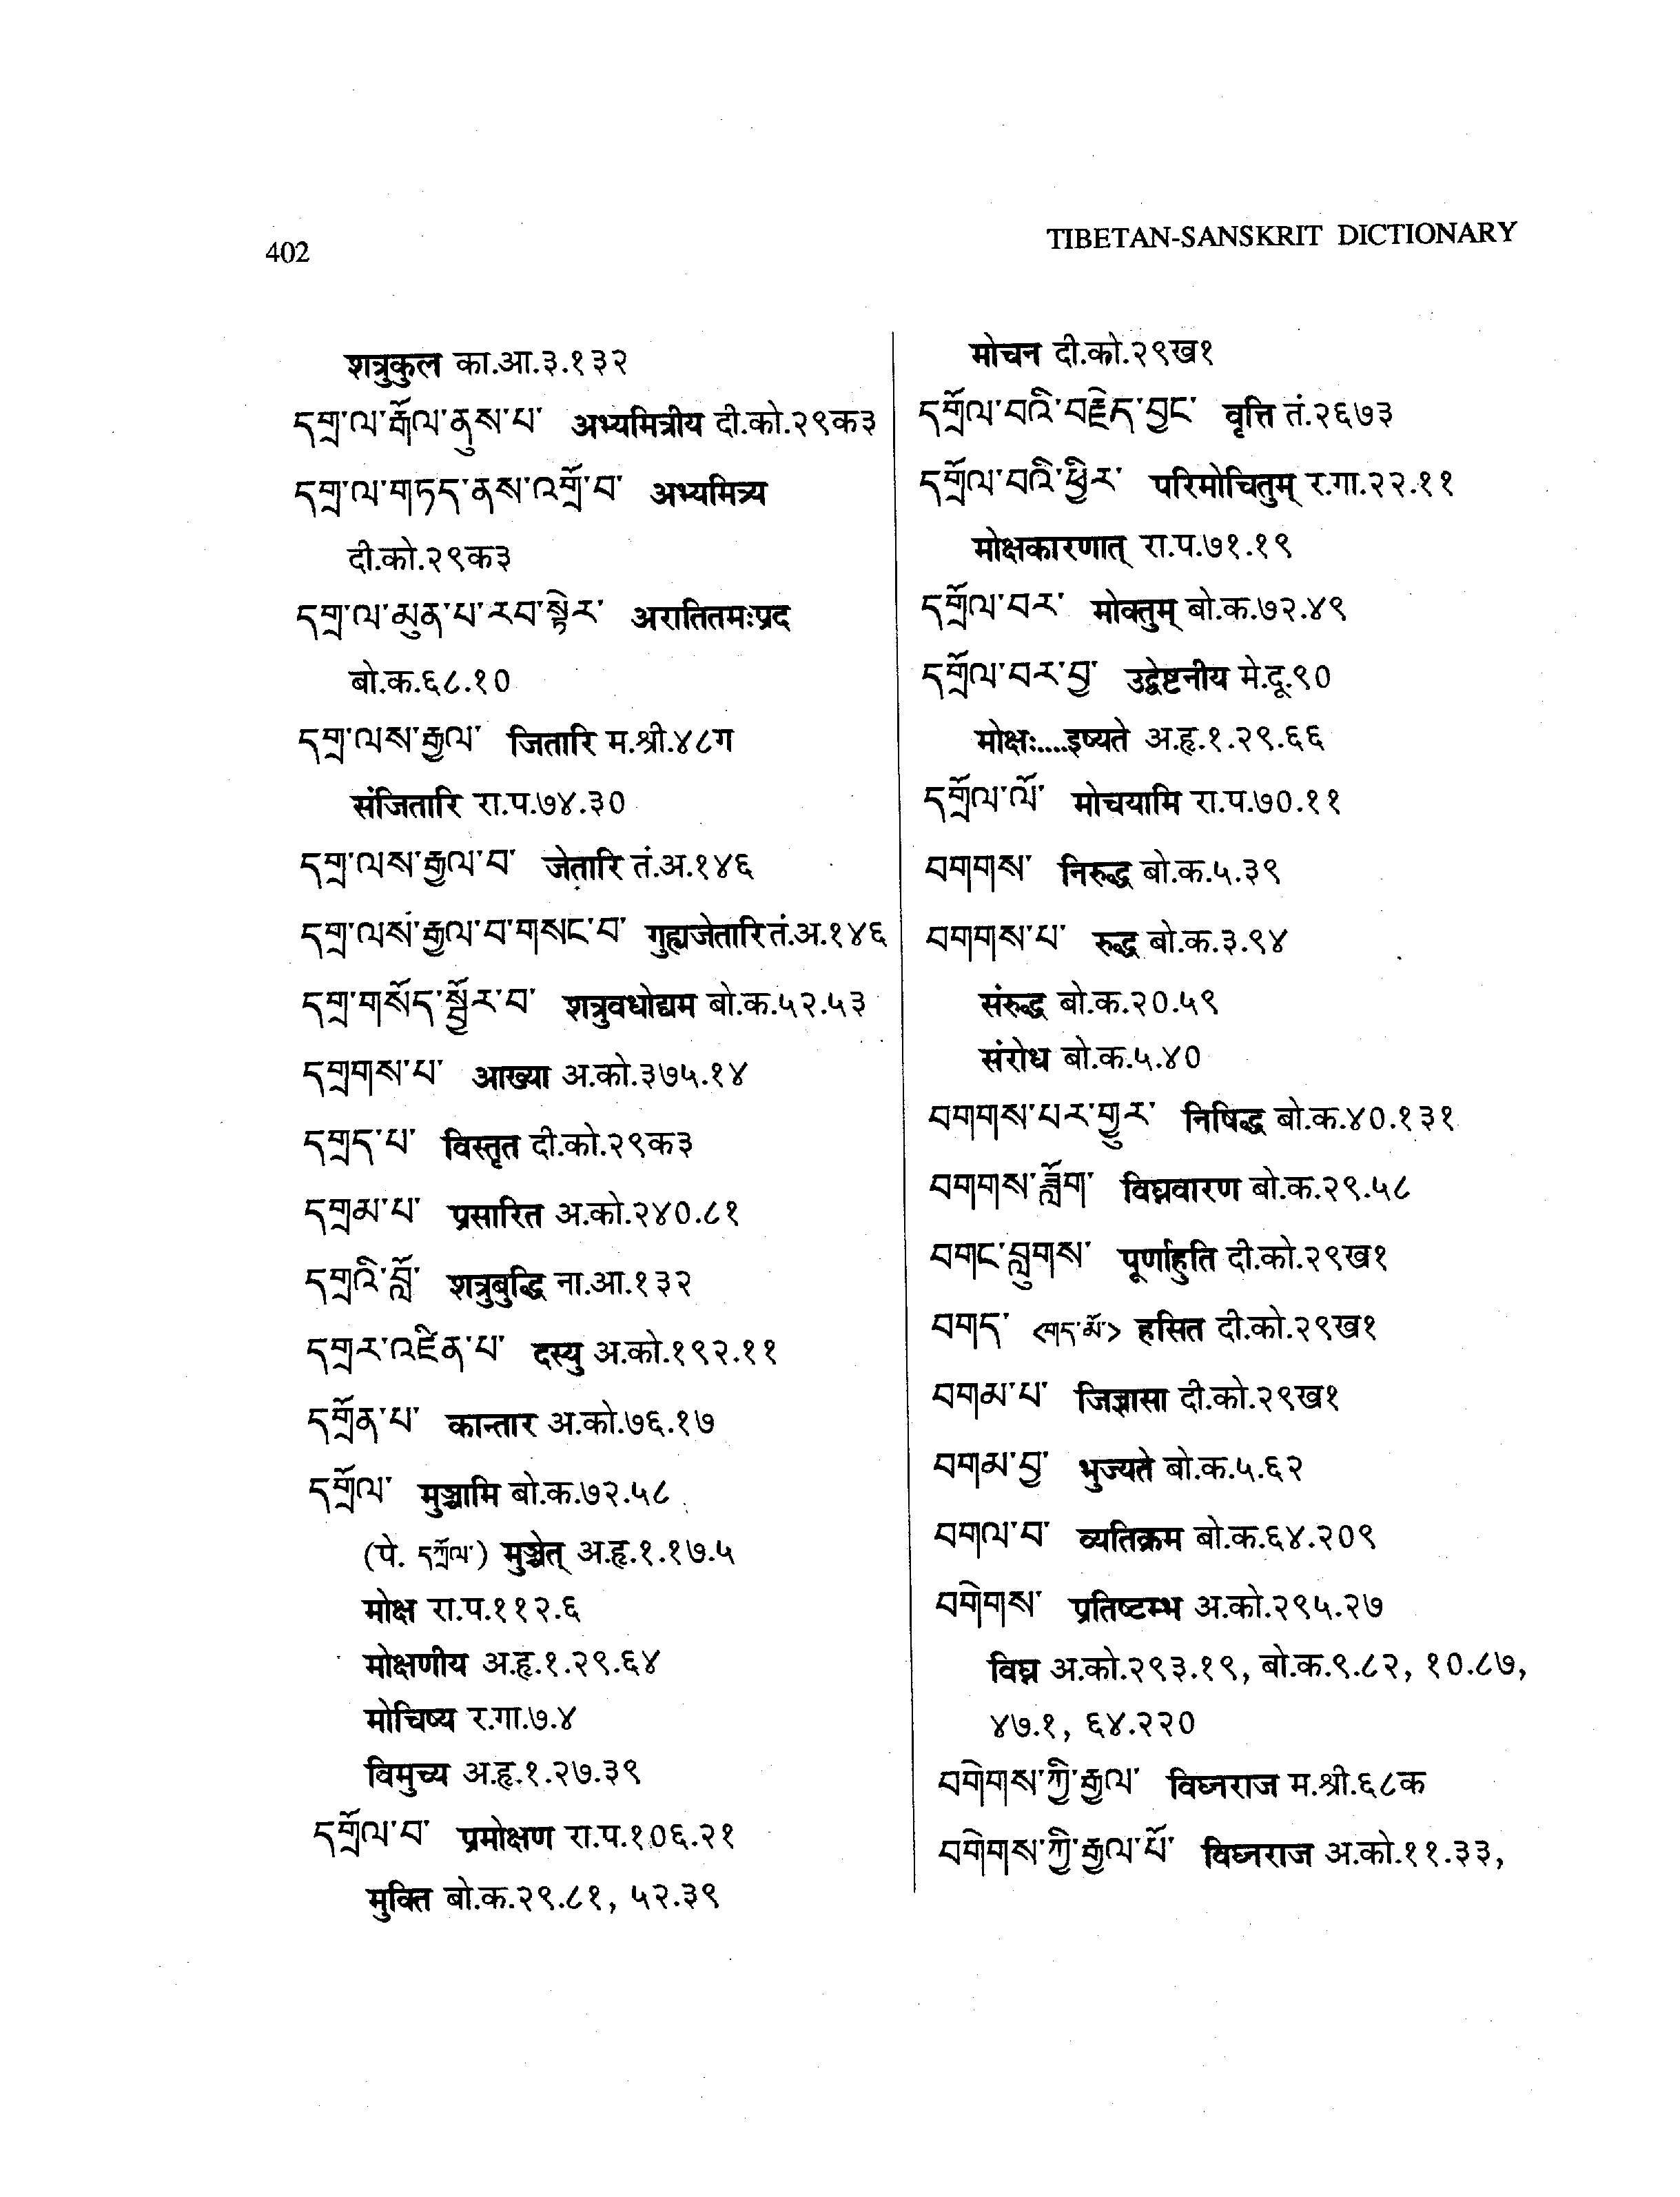 402
TIBETAN-SANSKRIT DICTIONARY
शत्रुकुल का.आ.३.१३२
དགྲ་ལ་རྒོལ་ནུས་པ་ अभ्यमित्रीय दी.को.२९क३
དགྲ་ལ་གཏད་ནས་འགྲོ་བ་ अभ्यमित्र्य
दी.को.२९क३
དགྲ་ལ་མུན་པ་རབ་སྟེར་ अरातितमःप्रद
बो.क.६८.१०
དགྲ་ལས་རྒྱལ་ जितारि म.श्री.४८ग
संजितारि रा.प.७४.३०
དགྲ་ལས་རྒྱལ་བ་ जेतारि तं.अ.१४६
དགྲ་ལས་རྒྱལ་བ་གསང་བ་ गुह्यजेतारि तं.अ.१४६
དགྲ་གསོད་སྦྱོར་བ་ शत्रुवधोद्यम बो.क.५२.५३
དགྲགས་པ་ आख्या अ.को.३७५.१४
དགྲད་པ་ विस्तृत दी.को.२९क३
དགྲམ་པ་ प्रसारित अ.को.२४०.८१
དགྲའི་བློ་ शत्रुबुद्धि ना.आ.१३२
དགྲར་འཛིན་པ་ दस्यु अ.को.१९२.११
དགྲོན་པ་ कान्तार अ.को.७६.१७
དགྲོལ་ मुञ्चामि बो.क.७२.५८
(पे. དཀྲོལ་) मुञ्चेत् अ.हृ.१.१७.५
मोक्ष रा.प.११२.६
मोक्षणीय अ.हृ.१.२९.६४
मोचिष्य र.गा.७.४
विमुच्य अ.हृ.१.२७.३९
དགྲོལ་བ་ प्रमोक्षण रा.प.१०६.२१
मुक्ति बो.क.२९.८१, ५२.३९
मोचन दी.को.२९ख१
དགྲོལ་བའི་བརྗེད་བྱང་ वृत्ति तं.२६७३
དགྲོལ་བའི་ཕྱིར་ परिमोचितुम् र.गा.२२.११
मोक्षकारणात् रा.प.७१.१९
དགྲོལ་བར་ मोक्तुम् बो.क.७२.४९
དགྲོལ་བར་བྱ་ उद्वेष्टनीय मे.दू.९०
मोक्षः....इष्यते अ.हृ.१.२९.६६
དགྲོལ་ལོ་ मोचयामि रा.प.७०.११
བགགས་ निरुद्ध बो.क.५.३९
བགགས་པ་ रुद्ध बो.क.३.९४
संरुद्ध बो.क.२०.५९
संरोध बो.क.५.४०
བགགས་པར་གྱུར་ निषिद्ध बो.क.४०.१३१
བགགས་ཟློག་ विघ्नवारण बो.क.२९.५८
བགང་བླུགས་ पूर्णाहुति दी.को.२९ख१
བགད་ <གད་མོ་> हसित दी.को.२९ख१
བགམ་པ་ जिज्ञासा दी.को.२९ख१
བགམ་བྱ་ भुज्यते बो.क.५.६२
བགལ་བ་ व्यतिक्रम बो.क.६४.२०९
བགེགས་ प्रतिष्टम्भ अ.को.२९५.२७
विघ्न अ.को.२९३.१९, बो.क.९.८२, १०.८७,
४७.१, ६४.२२०
བགེགས་ཀྱི་རྒྱལ་ विघ्नराज म.श्री.६८क
བགེགས་ཀྱི་རྒྱལ་པོ་ विघ्नराज अ.को.११.३३,